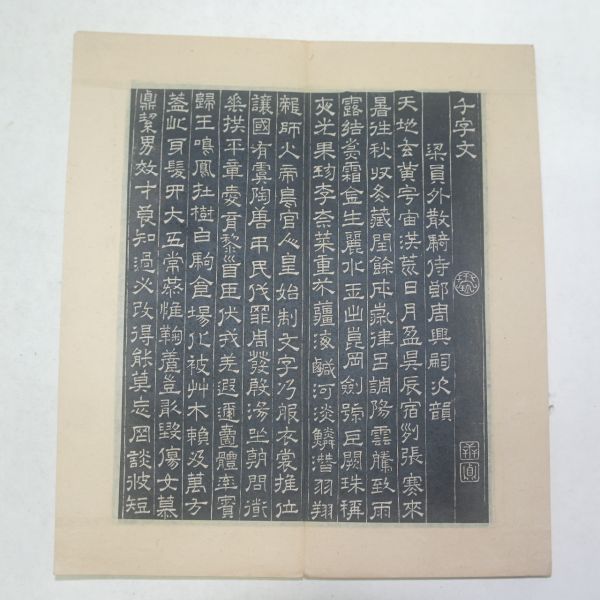 千字文
梁員外散騎侍郎周興嗣次韻
天地玄黃宇宙洪荒日月盈昃辰宿列張寒來
暑往秋收冬藏閏餘成歲律呂調陽雲騰致雨
露結為霜金生麗水玉出崑岡劍號巨闕珠稱
夜光果珍李柰菜重芥薑海鹹河淡鱗潛羽翔
龍師火帝鳥官人皇始制文字乃服衣裳推位
讓國有虞陶唐弔民伐罪周發殷湯坐朝問道
垂拱平章愛育黎首臣伏戎羌遐邇壹體率賓
歸王鳴鳳在樹白駒食場化被艸木賴及萬方
蓋此身髮四大五常恭惟鞠養豈敢毀傷女慕
貞絜男效才良知過必改得能莫忘罔談彼短